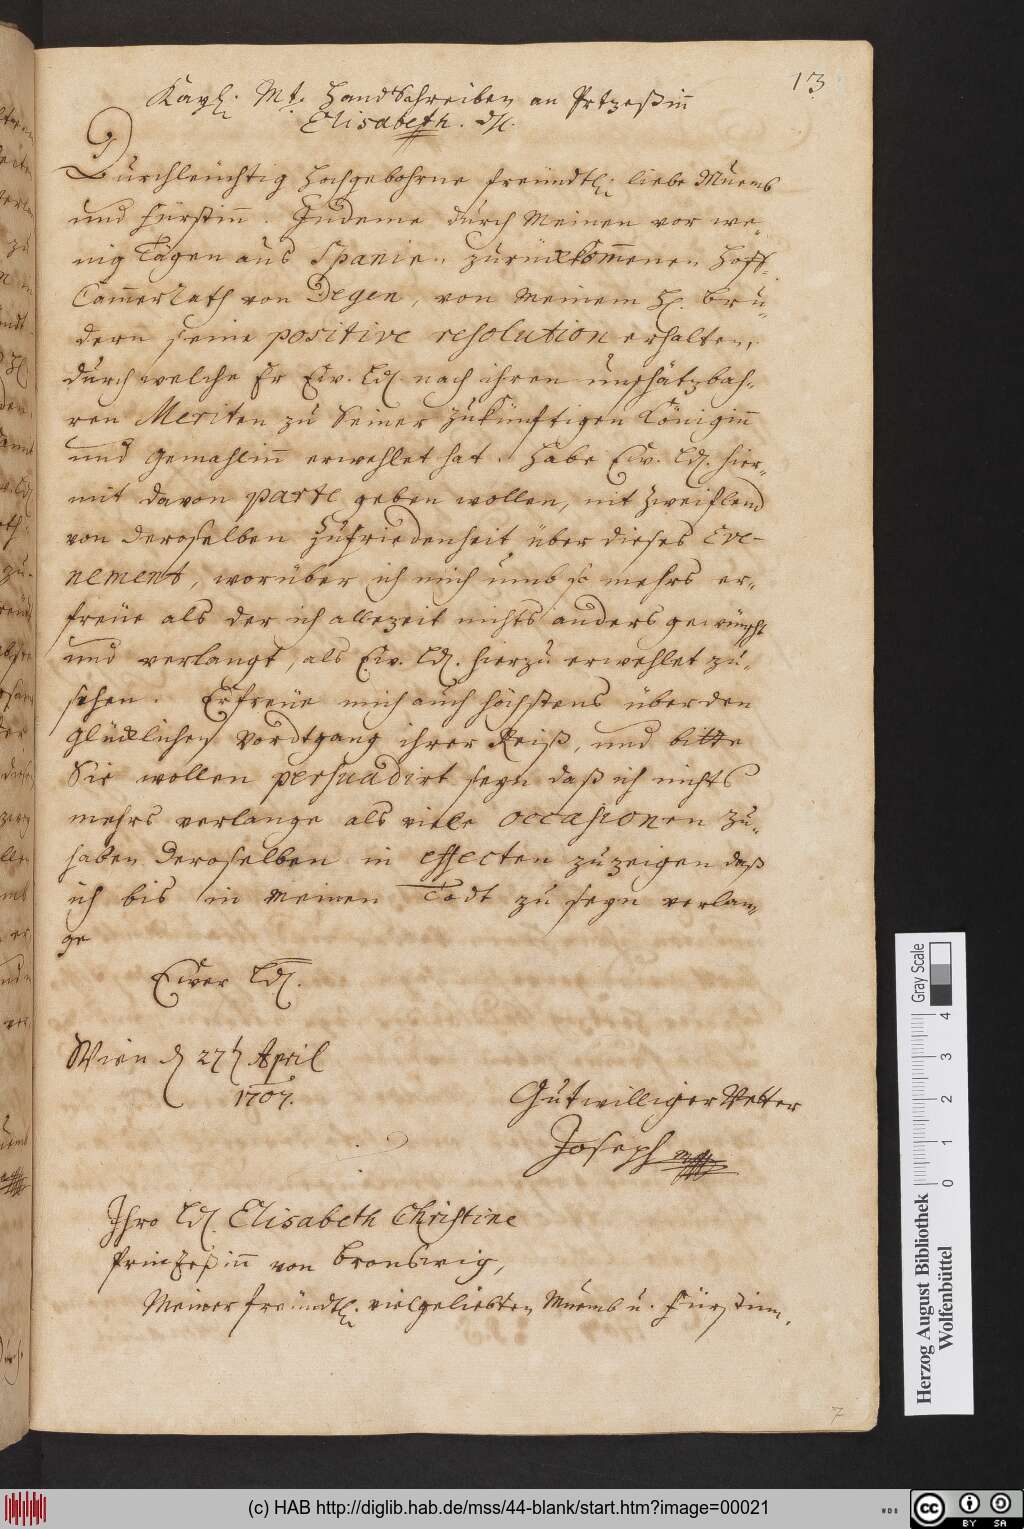 13
Kayl. Mt. HandSchreiben an Prtzeßiñ
Elisabeth.
Durchleüchtig Hochgebohrne freündtl. liebe Muemb
und Fürstiñ. Indeme durch Meinen vor we-
nig Tägen aus Spanien zurückkom̃enen Hoff-
Cam̃erRath von Degen, von Meinem H. Brü-
dern seine positive resolution erhalten,
durch welche Er Ew. Ld. nach ihren unschätzbah-
ren Meriten zu Seiner Zukünfftigen Königiñ
und Gemahliñ erwehlet hat. Habe Ew. Ld. hier-
mit davon parte geben wollen, nit Zweiflend
von deroselben Zufriedenheit über dieses Eve-
nement, worüber ich mich umb so mehrs er-
freüe als der ich allezeit nichts anders gewünscht
und verlangt, als Ew. Ld. hierzu erwehlet zu-
sehen. Erfreüe mich auch höchstens über den
glücklichen Vordtgang ihrer Reiß, und bitte
Sie wollen persuadirt seyn daß ich nichts
mehrs verlange als viele occasionen zu-
haben Deroselben in effecten zuzeigen daß
ich bis in meinen Todt zu seyn verlan-
ge
Ewer Ld.
Wien d 27t April
1707.
Gutwilliger Vetter
Joseph
Ihro Ld. Elisabeth Christine
Prinzeßiñ von Bronswig,
Meiner freündtl. vielgeliebten Muemb u. Fürstinn.
7
Herzog August Bibliothek
Wolfenbüttel
0 1 2 3 4
Gray Scale
(c) HAB http://diglib.hab.de/mss/44-blank/start.htm?image=00021
WDB
cc BY SA